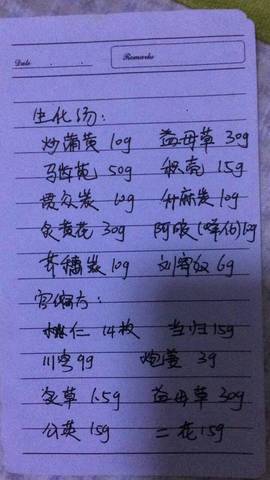 Date
Remarks
生化汤:
炒蒲黄 10g 益母草 30g
马齿苋 50g 枳壳 15g
贯众炭 10g 升麻炭 10g
炙黄芪 30g 阿胶(烊化)10g
芥穗炭 10g 刘寄奴 6g
宫缩方:
桃仁 14枚 当归 15g
川芎 9g 炮姜 3g
炙草 1.5g 益母草 30g
公英 15g 二花 15g